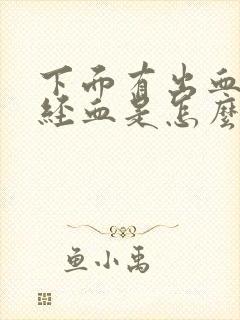 下面有出血
经血是怎麼
鱼小禹